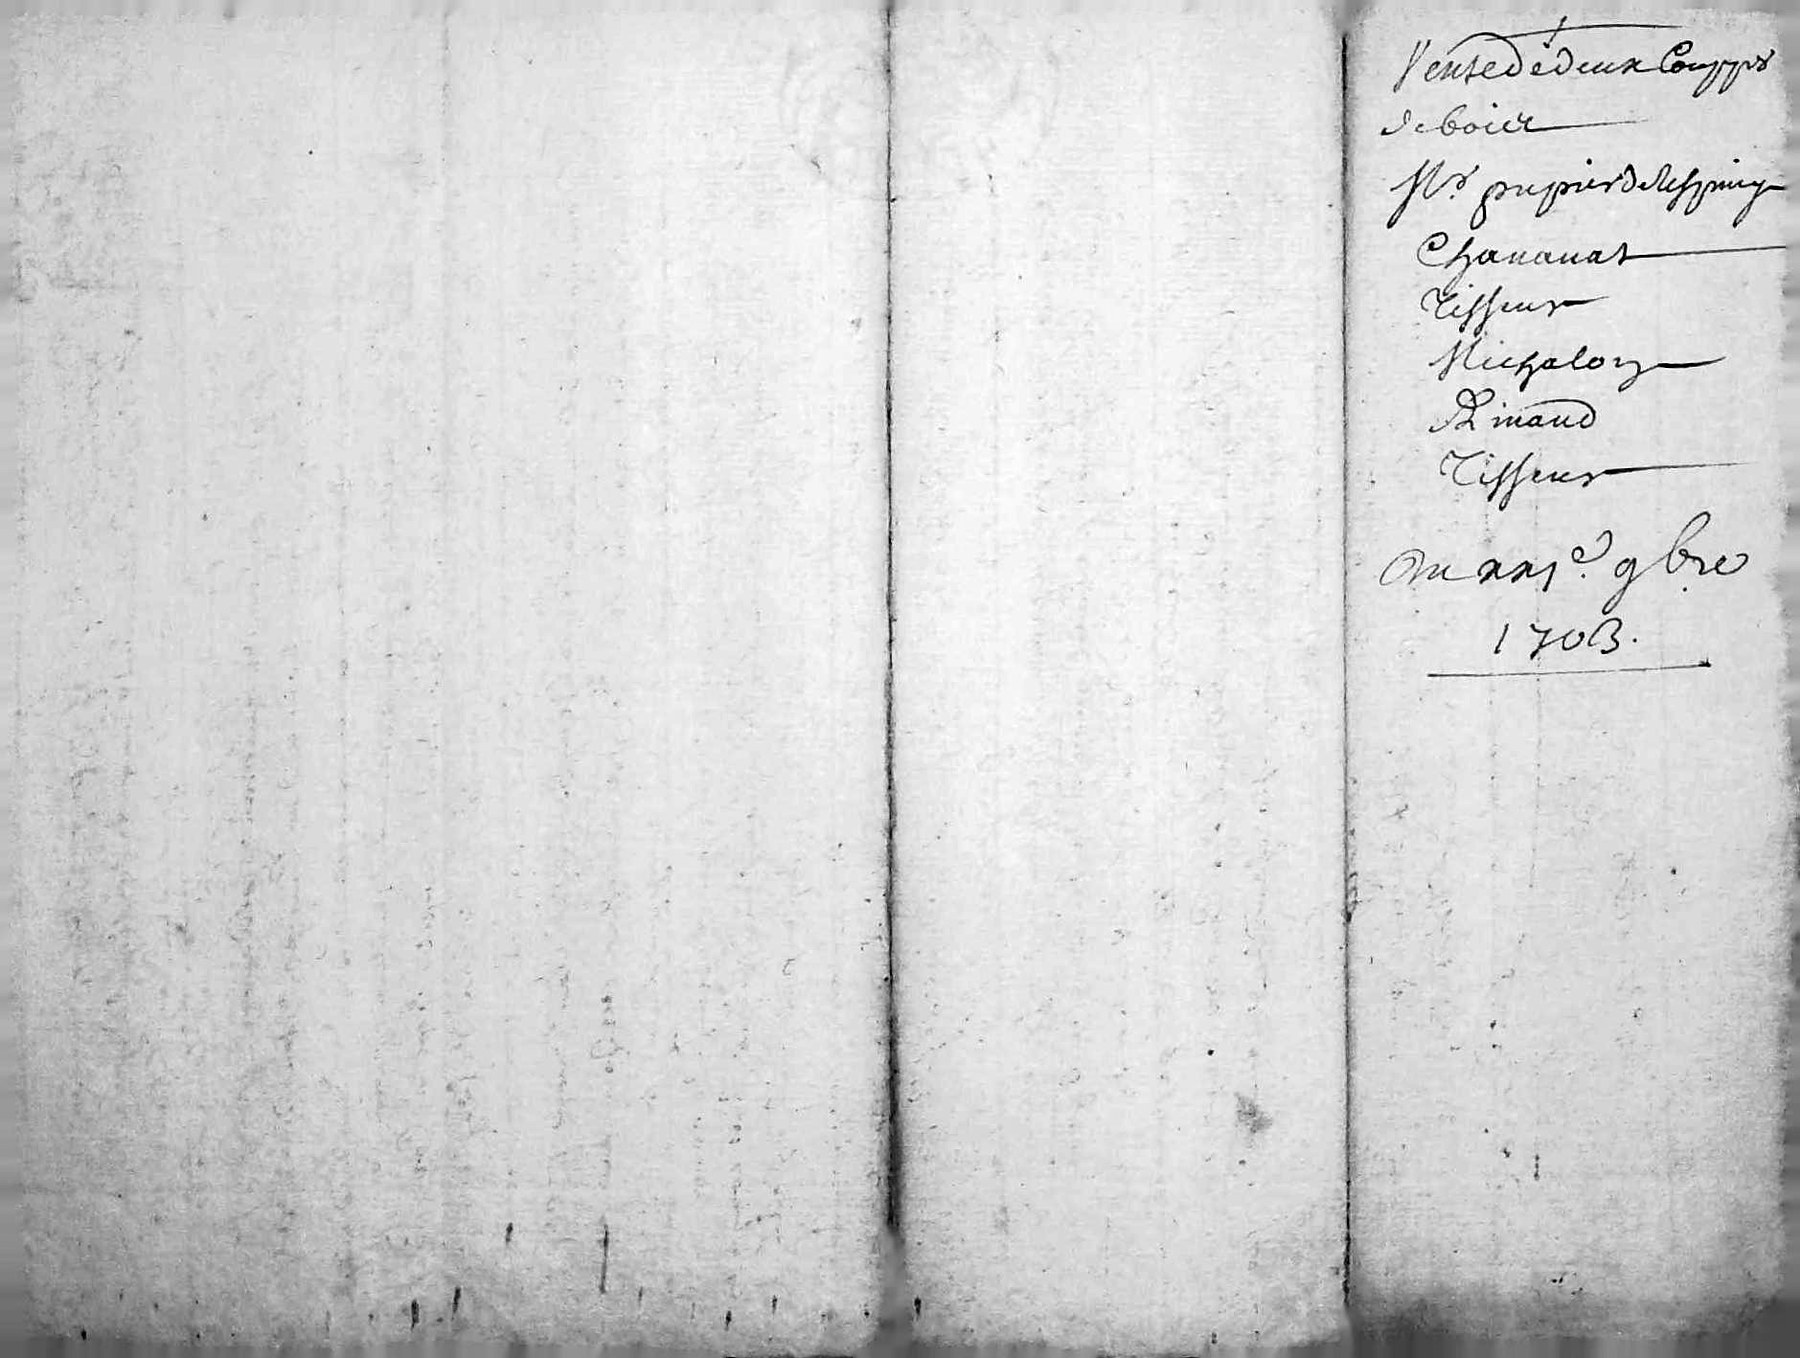 Vente de deux Couppes
de bois
Mr. pupier de lespiney
Chauanat
Tisseur
Michalon
Rimaud
Tisseur
Du xxje. 9bre
1703.